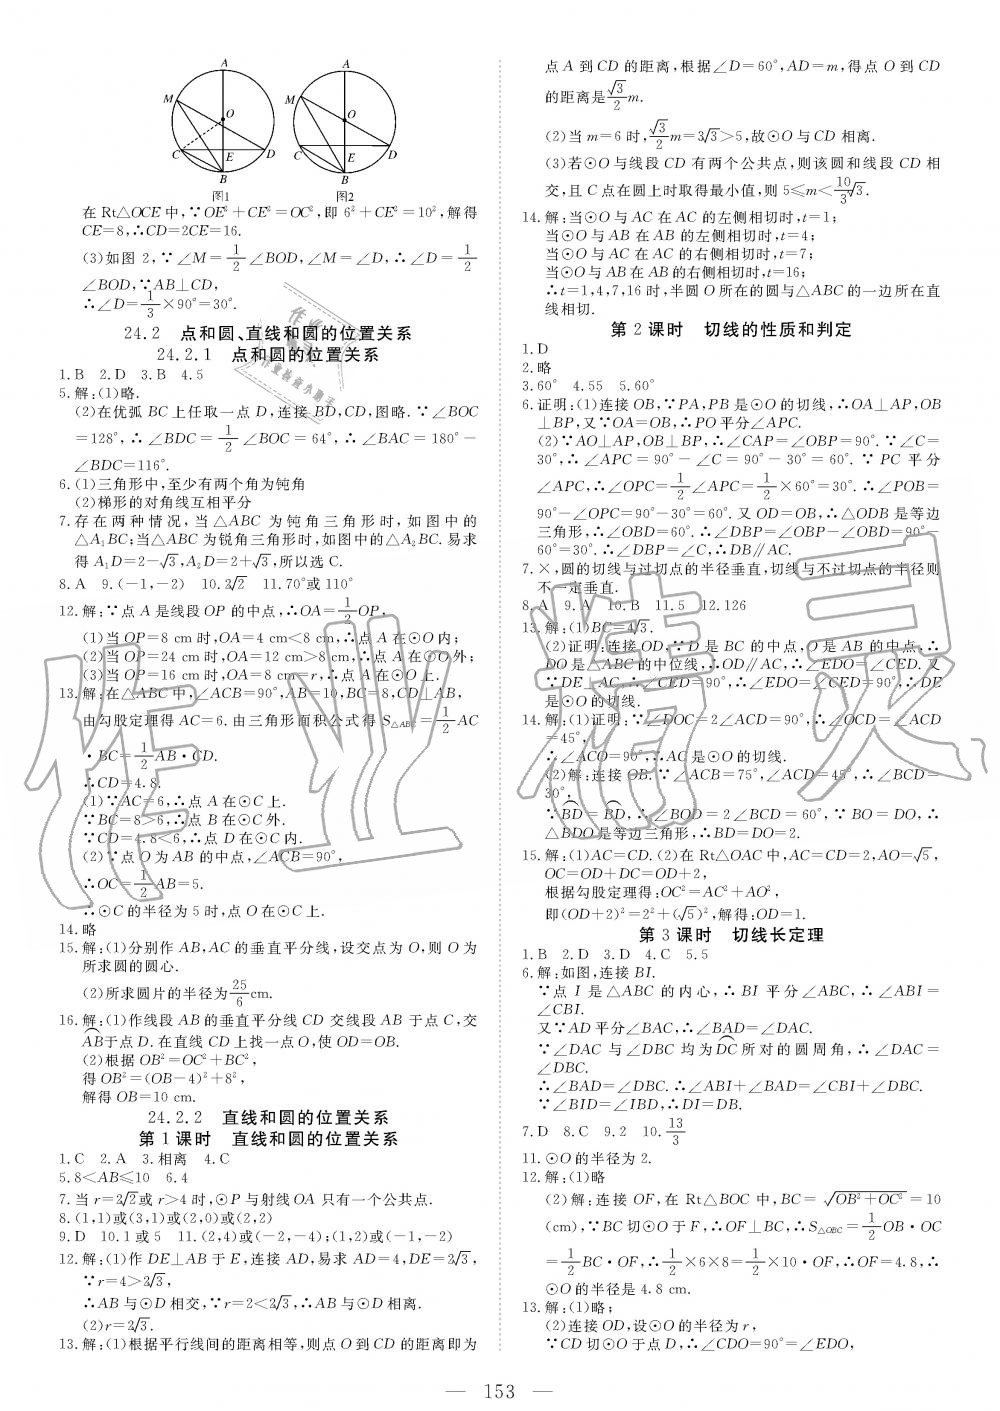 A
M
O
C
E
D
B
图1
A
M
O
C
E
D
B
图2
在 Rt△OCE 中,∵OE²+CE²=OC²,即 6²+CE²=10²,解得
CE=8,∴CD=2CE=16.
(3)如图 2,∵∠M=1/2∠BOD,∠M=∠D,∴∠D=1/2
∠BOD,∵AB⊥CD,
∴∠D=1/3×90°=30°.
24.2 点和圆、直线和圆的位置关系
24.2.1 点和圆的位置关系
1.B 2.D 3.B 4.5
5.解:(1)略.
(2)在优弧 BC 上任取一点 D,连接 BD,CD,图略.∵∠BOC
=128°,∴∠BDC=1/2∠BOC=64°,∴∠BAC=180°-
∠BDC=116°.
6.(1)三角形中,至少有两个角为钝角
(2)梯形的对角线互相平分
7.存在两种情况,当△ABC 为钝角三角形时,如图中的
△A₁BC;当△ABC 为锐角三角形时,如图中的△A₂BC.易求
得 A₁D=2-√3,A₂D=2+√3,所以选 C.
8.A 9.(-1,-2) 10.3√2 11.70°或 110°
12.解:∵点 A 是线段 OP 的中点,∴OA=1/2OP,
(1)当 OP=8 cm 时,OA=4 cm<8 cm,∴点 A 在⊙O 内;
(2)当 OP=24 cm 时,OA=12 cm>8 cm,∴点 A 在⊙O 外;
(3)当 OP=16 cm 时,OA=8 cm=r,∴点 A 在⊙O 上.
13.解:在△ABC 中,∠ACB=90°,AB=10,BC=8,CD⊥AB,
由勾股定理得 AC=6.由三角形面积公式得 S△ABC=1/2AC
·BC=1/2AB·CD.
∴CD=4.8.
(1)∵AC=6,∴点 A 在⊙C 上.
∵BC=8>6,∴点 B 在⊙C 外.
∵CD=4.8<6,∴点 D 在⊙C 内.
(2)∵点 O 为 AB 的中点,∠ACB=90°,
∴OC=1/2AB=5.
∴⊙C 的半径为 5 时,点 O 在⊙C 上.
14.略
15.解:(1)分别作 AB,AC 的垂直平分线,设交点为 O,则 O 为
所求圆的圆心.
(2)所求圆片的半径为25/6cm.
16.解:(1)作线段 AB 的垂直平分线 CD 交线段 AB 于点 C,交
AB于点 D.在直线 CD 上找一点 O,使 OD=OB.
(2)根据 OB²=OC²+BC²,
得 OB²=(OB-4)²+8²,
解得 OB=10 cm.
24.2.2 直线和圆的位置关系
第 1 课时 直线和圆的位置关系
1.C 2.A 3.相离 4.C
5.8<AB≤10 6.4
7.当 r=2√2或 r>4 时,⊙P 与射线 OA 只有一个公共点.
8.(1,1)或(3,1)或(2,0)或(2,2)
9.D 10.1 或 5 11.(2,4)或(-2,-4);(1,2)或(-1,-2)
12.解:(1)作 DE⊥AB 于 E,连接 AD,易求 AD=4,DE=2√3,
∵r=4>2√3,
∴AB 与⊙D 相交,∵r=2<2√3,∴AB 与⊙D 相离.
(2)r=2√3.
13.解:(1)根据平行线间的距离相等,则点 O 到 CD 的距离即为
点 A 到 CD 的距离,根据∠D=60°,AD=m,得点 O 到 CD
的距离是√3/2 m.
(2)当 m=6 时,√3/2 m=3√3>5,故⊙O 与 CD 相离.
(3)若⊙O 与线段 CD 有两个公共点,则该圆和线段 CD 相
交,且 C 点在圆上时取得最小值,则 5≤m<10/3√3.
14.解:当⊙O 与 AC 在 AC 的左侧相切时,t=1;
当⊙O 与 AB 在 AB 的左侧相切时,t=4;
当⊙O 与 AC 在 AC 的右侧相切时,t=7;
当⊙O 与 AB 在 AB 的右侧相切时,t=16;
∴t=1,4,7,16 时,半圆 O 所在的圆与△ABC 的一边所在直
线相切.
第 2 课时 切线的性质和判定
1.D
2.略
3.60° 4.55 5.60°
6.证明:(1)连接 OB,∵PA,PB 是⊙O 的切线,∴OA⊥AP,OB
⊥BP,又∵OA=OB,∴PO 平分∠APC.
(2)∵AO⊥AP,OB⊥BP,∴∠CAP=∠OBP=90°.∵∠C=
30°,∴∠APC=90°-∠C=90°-30°=60°.∵PC 平分
∠APC,∴∠OPC=1/2∠APC=1/2×60°=30°.∴∠POB=
90°-∠OPC=90°-30°=60°.又 OD=OB,∴△ODB 是等边
三角形,∴∠OBD=60°.∴∠DBP=∠OBP-∠OBD=90°-
60°=30°.∴∠DBP=∠C,∴DB∥AC.
7.×,圆的切线与过切点的半径垂直,切线与不过切点的半径则
不一定垂直.
8.A 9.A 10.B 11.5 12.126
13.解:(1)BC=4√3.
(2)证明:连接 OD,∵D 是 BC 的中点,O 是 AB 的中点,∴
DO 是△ABC 的中位线,∴OD∥AC,∴∠EDO=∠CED.又
∵DE⊥AC,∴∠CED=90°,∴∠EDO=∠CED=90°,∴DE
是⊙O 的切线.
14.解:(1)证明:∵∠DOC=2∠ACD=90°,∴∠OCD=∠ACD
=45°,
∴∠ACO=90°,∴AC 是⊙O 的切线.
(2)解:连接 OB.∵∠ACB=75°,∠ACD=45°,∴∠BCD=
30°,
∵BD=BD,∴∠BOD=2∠BCD=60°,∵BO=DO,∴
△BDO 是等边三角形,∴BD=DO=2.
15.解:(1)AC=CD.(2)在 Rt△OAC 中,AC=CD=2,AO=√5,
OC=OD+DC=OD+2,
根据勾股定理得:OC²=AC²+AO²,
即(OD+2)²=2²+(√5)²,解得:OD=1.
第 3 课时 切线长定理
1.B 2.D 3.D 4.C 5.5
6.解:如图,连接 BI.
∵点 I 是△ABC 的内心,∴BI 平分∠ABC,∴∠ABI=
∠CBI.
又∵AD 平分∠BAC,∴∠BAD=∠DAC.
∵∠DAC 与∠DBC 均为DC所对的圆周角,∴∠DAC=
∠DBC.
∴∠BAD=∠DBC.∴∠ABI+∠BAD=∠CBI+∠DBC.
∵∠BID=∠IBD,∴DI=DB.
7.D 8.C 9.2 10.13/3
11.⊙O 的半径为 2.
12.解:(1)略
(2)解:连接 OF,在 Rt△BOC 中,BC=√(OB²+OC²)=10
(cm),∵BC 切⊙O 于 F,∴OF⊥BC,∴S△OBC=1/2OB·OC
=1/2BC·OF,∴1/2×6×8=1/2×10·OF,∴OF=4.8,∴
⊙O 的半径是 4.8 cm.
13.解:(1)略;
(2)连接 OD,设⊙O 的半径为 r,
∵CD 切⊙O 于点 D,∴∠CDO=90°=∠EDO,
— 153 —
作业精灵